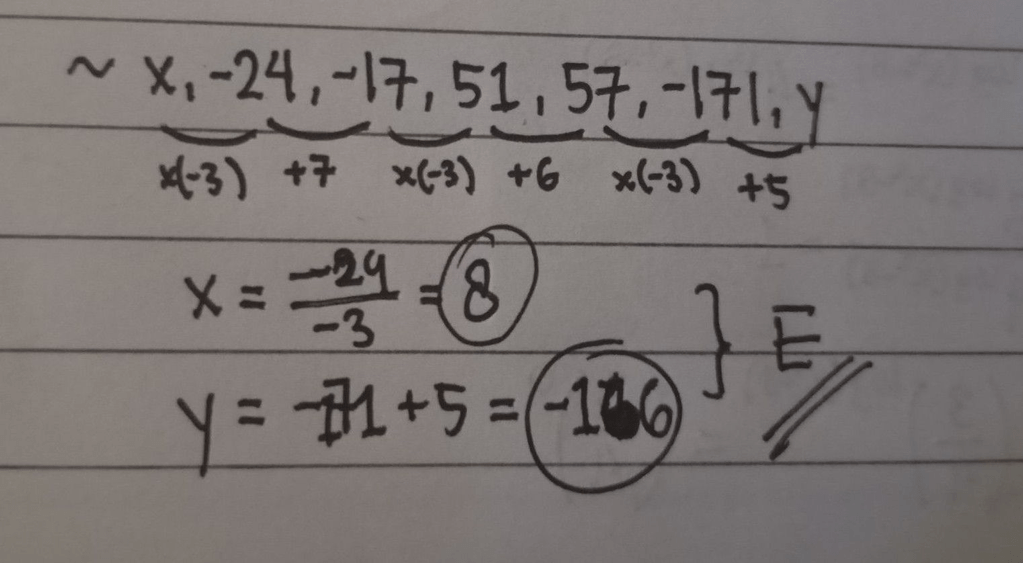 ~ x, -24, -17, 51, 57, -171, y
x(-3) +7 x(-3) +6 x(-3) +5
x = -24/-3 = 8
} E
y = -171 + 5 = -166